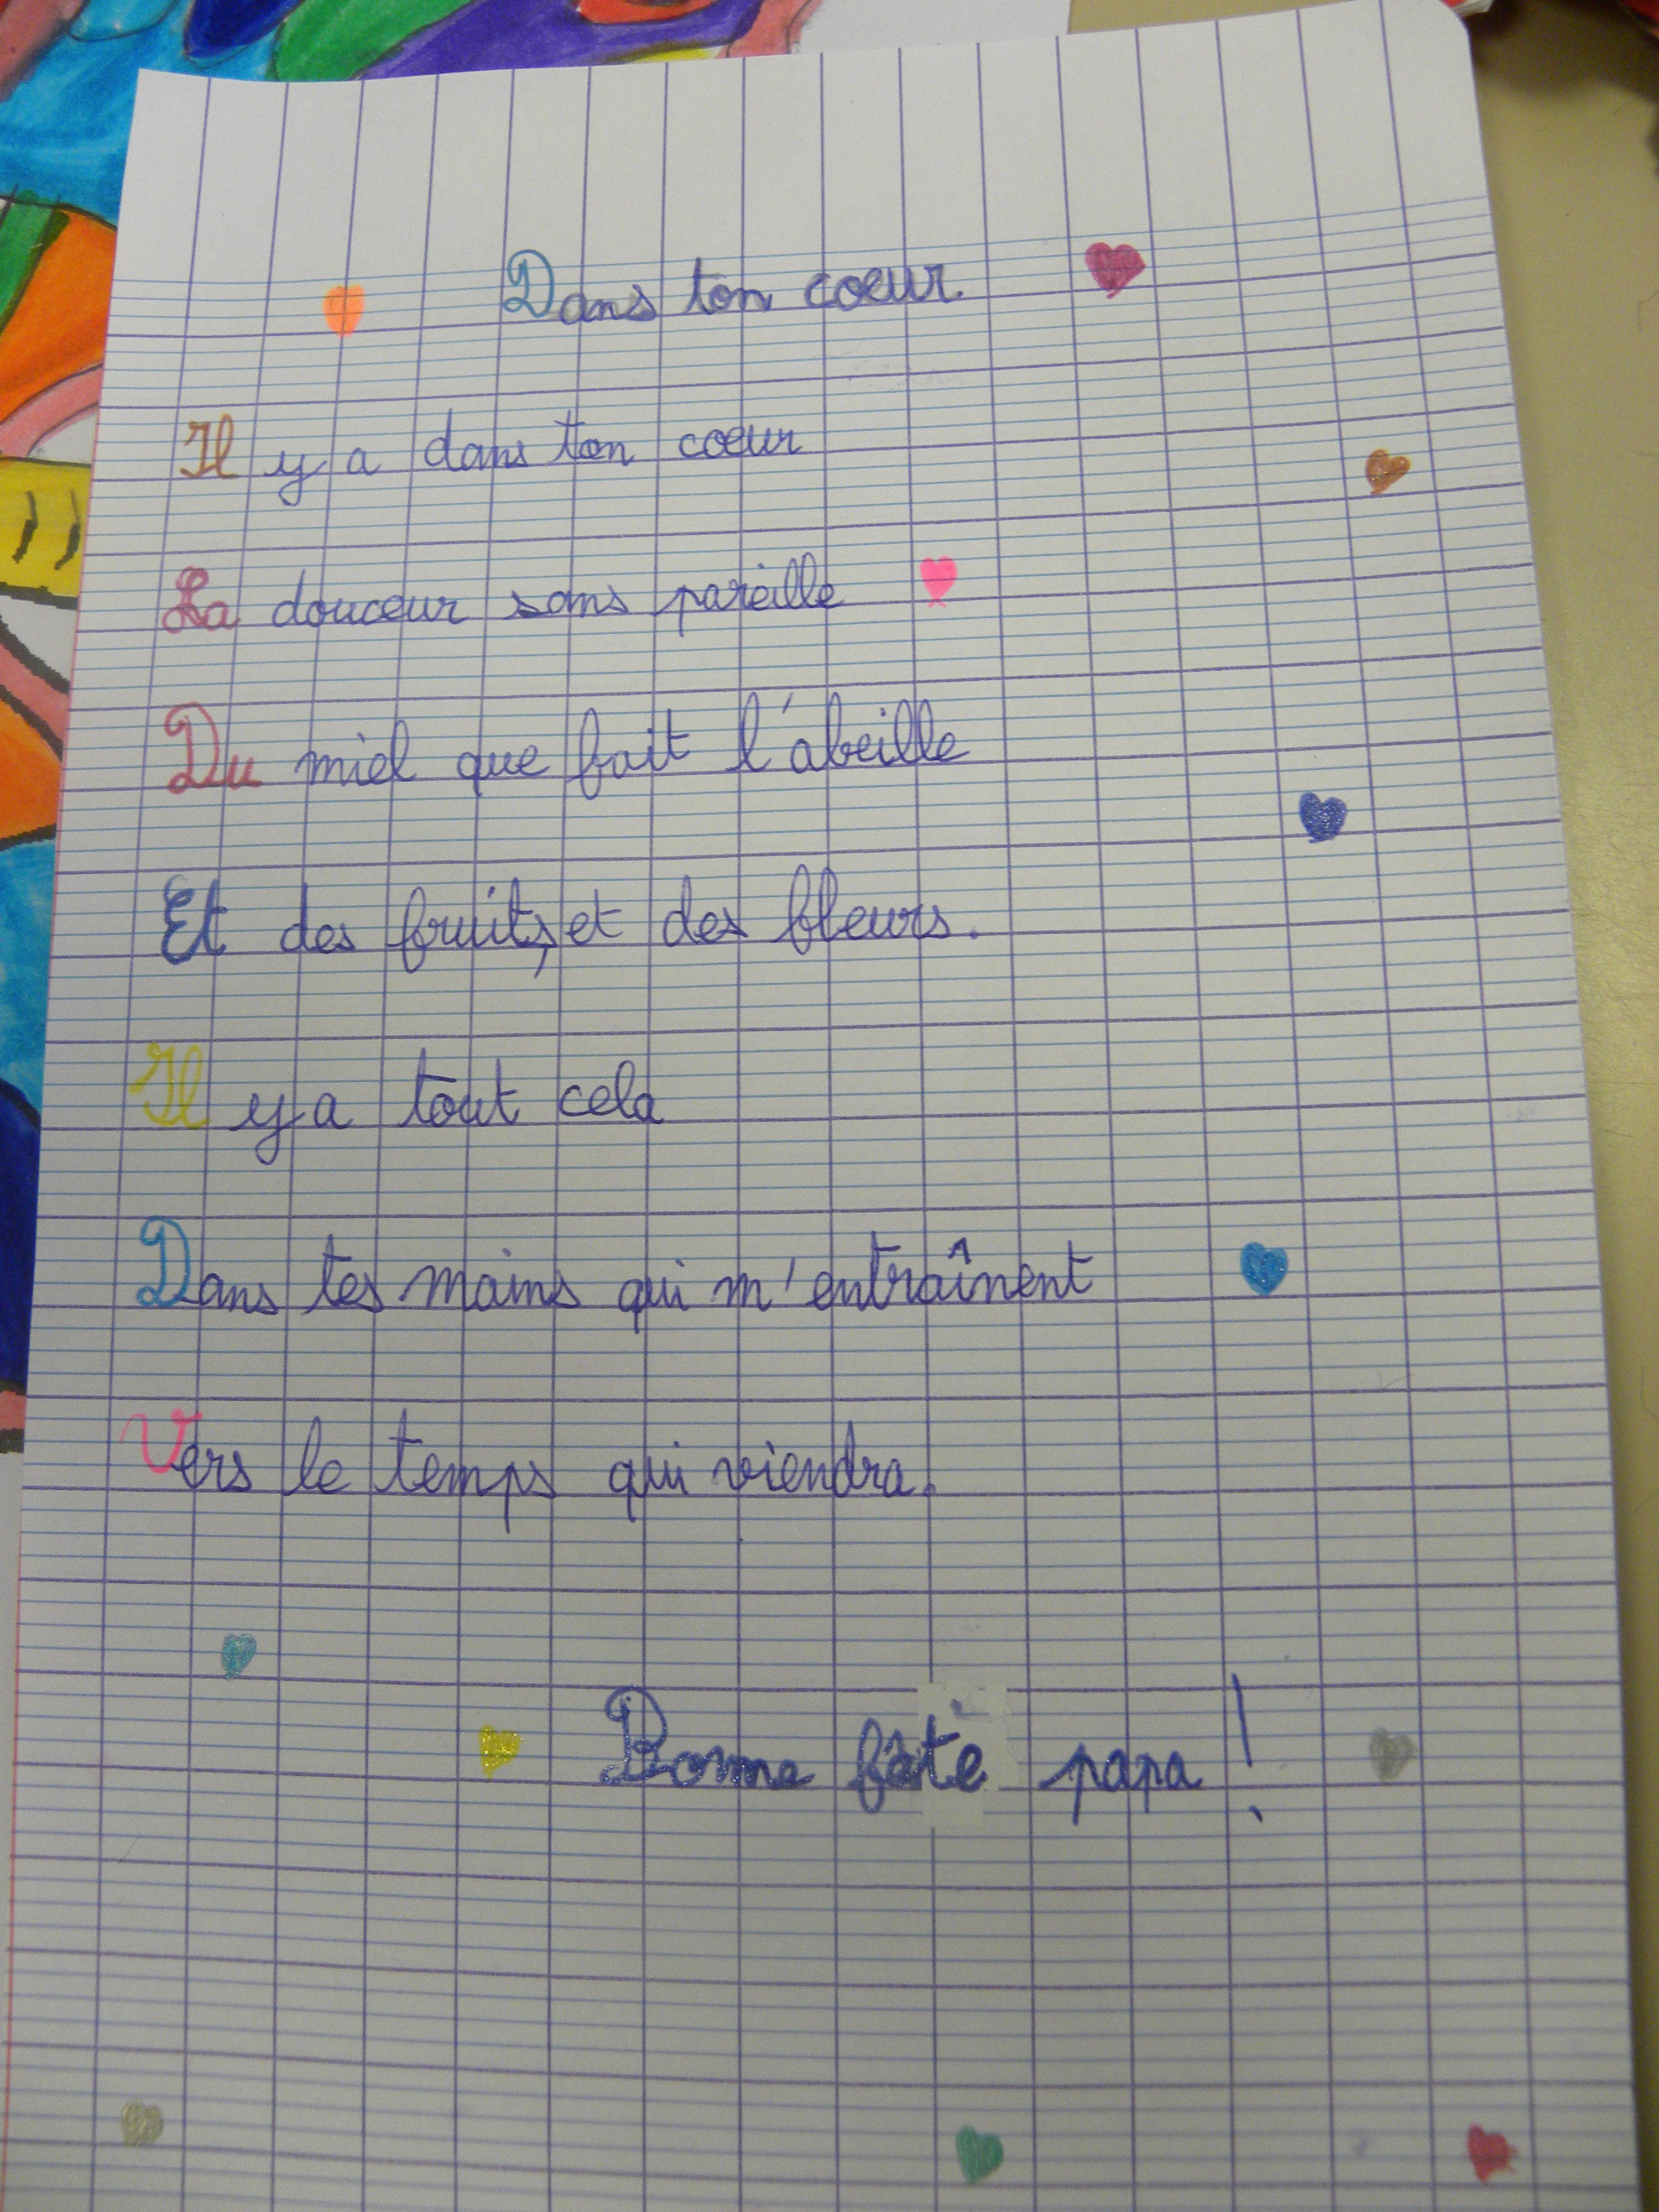 Dans ton coeur.
Il y a dans ton coeur
La douceur sans pareille
Du miel que fait l'abeille
Et des fruits, et des fleurs.
Il y a tout cela
Dans tes mains qui m'entraînent
Vers le temps qui viendra.
Bonne fête papa !